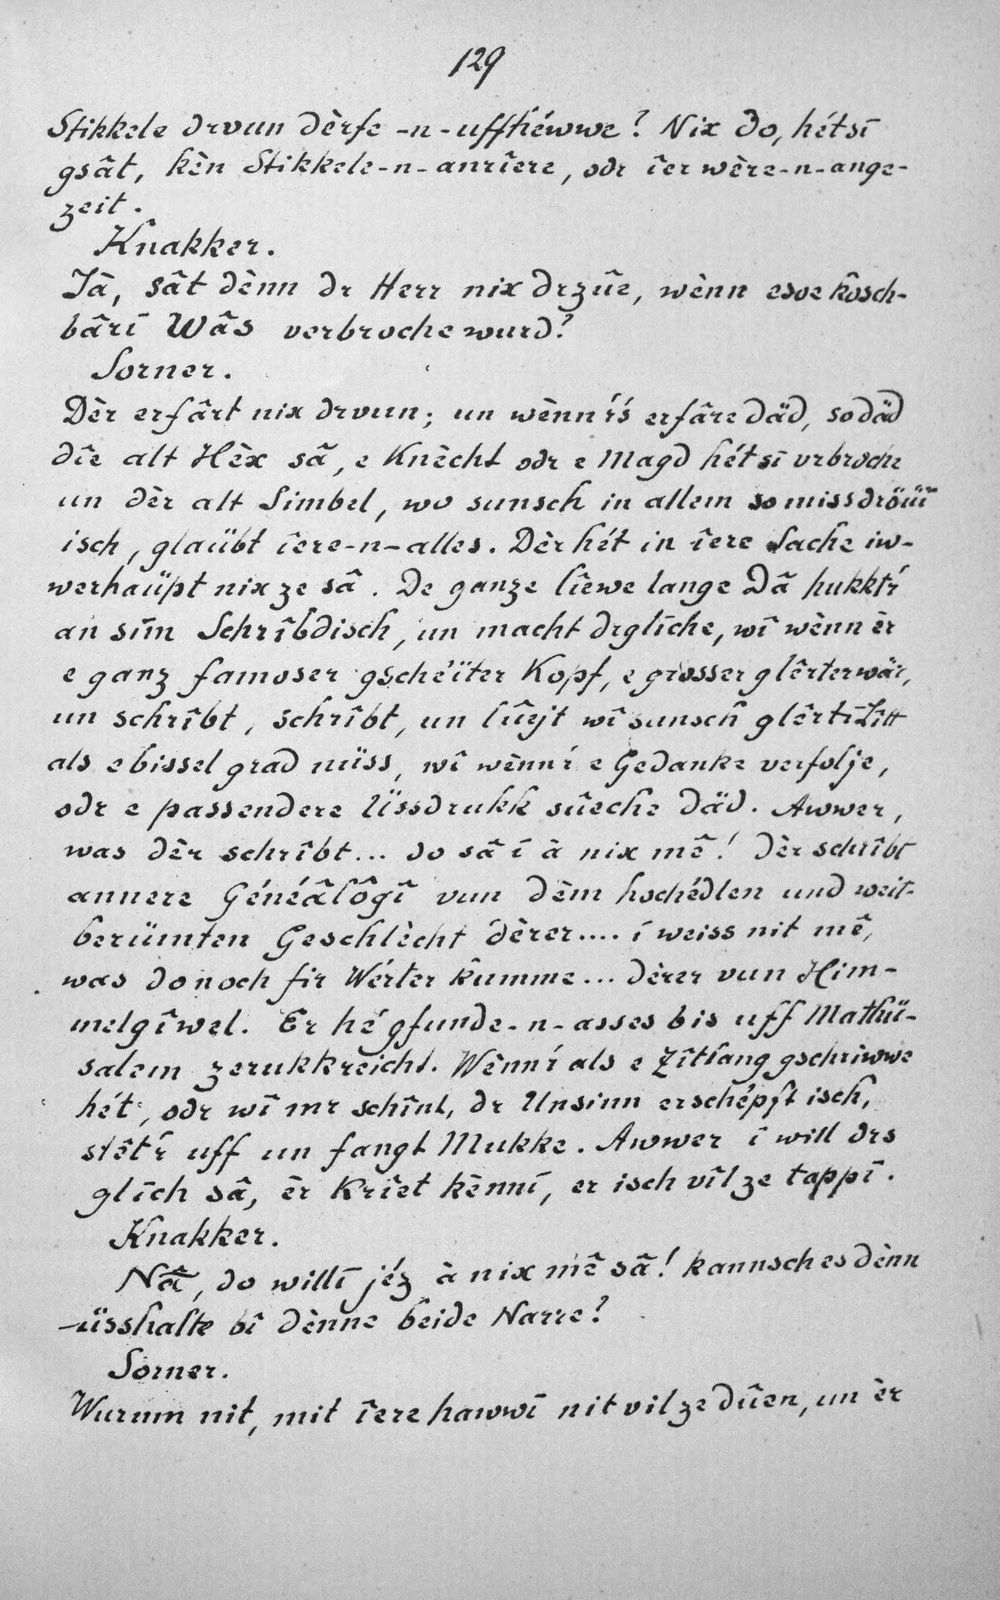 129
Stikkele drvun dèrfe -n- uffhéwwe? Nix do, hét sī
gsât, kèn Stikkele-n-anrîere, odr îer wère-n-ange-
zeit.
Knakker.
Jà, sât dènn dr Herr nix drzûe, wènn esoe kôsch-
bârī Wâs verbroche wurd?
Sorner.
Dèr erfârt nix drvun; un wènn'rs erfâre däd, so däd
dîe alt Hèx sã, e Knècht odr e Magd hét sī vrbroche
un dèr alt Simbel, wo sunsch in allem so missdröüīī
isch, glaübt îere-n-alles. Dèr hét in îere Sache iw-
werhaüpt nix ze sâ. De ganze lîewe lange Dã hukkt'r
an sīm Schrîbdisch, un macht drglîche, wî wènn èr
e ganz famoser gschéïter Kopf, e grosser glêrter wär,
un schrîbt, schrîbt, un lûejt wî sunsch glêrtī Litt
als e bissel grad nüss, wî wènn'r e Gedanke verfolje,
odr e passendere Üssdrukk sûeche däd. Awwer,
was dèr schrîbt... do sâ ī à nix mê! Dèr schrîbt
annere Généâlôgî vun dèm hochédlen und weit-
berümten Geschlècht dèrer.... ī weiss nit mê,
was do noch fir Wérter kumme... dèrer vun Him-
melgîwel. Er hé gfunde-n-asses bis uff Mathü-
salem zerukkreicht. Wènn'r als e Zîtlang gschriwwe
hét, odr wî mr schînt, dr Unsinn erschépft isch,
stêt'r uff un fangt Mukke. Awwer ī will drs
glîch sâ, èr krîet kènnī, er isch vîl ze tappī.
Knakker.
Nã, do will ī jéz à nix mê sã! kannsch es dènn
-üsshalte bî dènne beide Narre?
Sorner.
Wurum nit, mit îere hawwī nit vil ze dûen, un èr